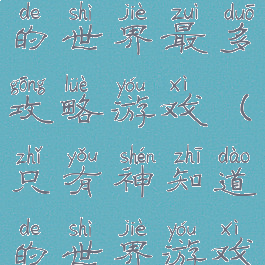 de shì jiè zuì duō
的世界最多
gōng lüè yóu xì
攻略游戏（
zhǐ yǒu shén zhī dào
只有神知道
de shì jiè yóu xì
的世界游戏